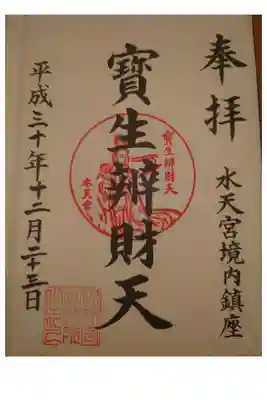 奉拝
水天宮境内鎮座
寶生辨財天
寶生辨財天
水天宮
平成三十年十二月二十三日